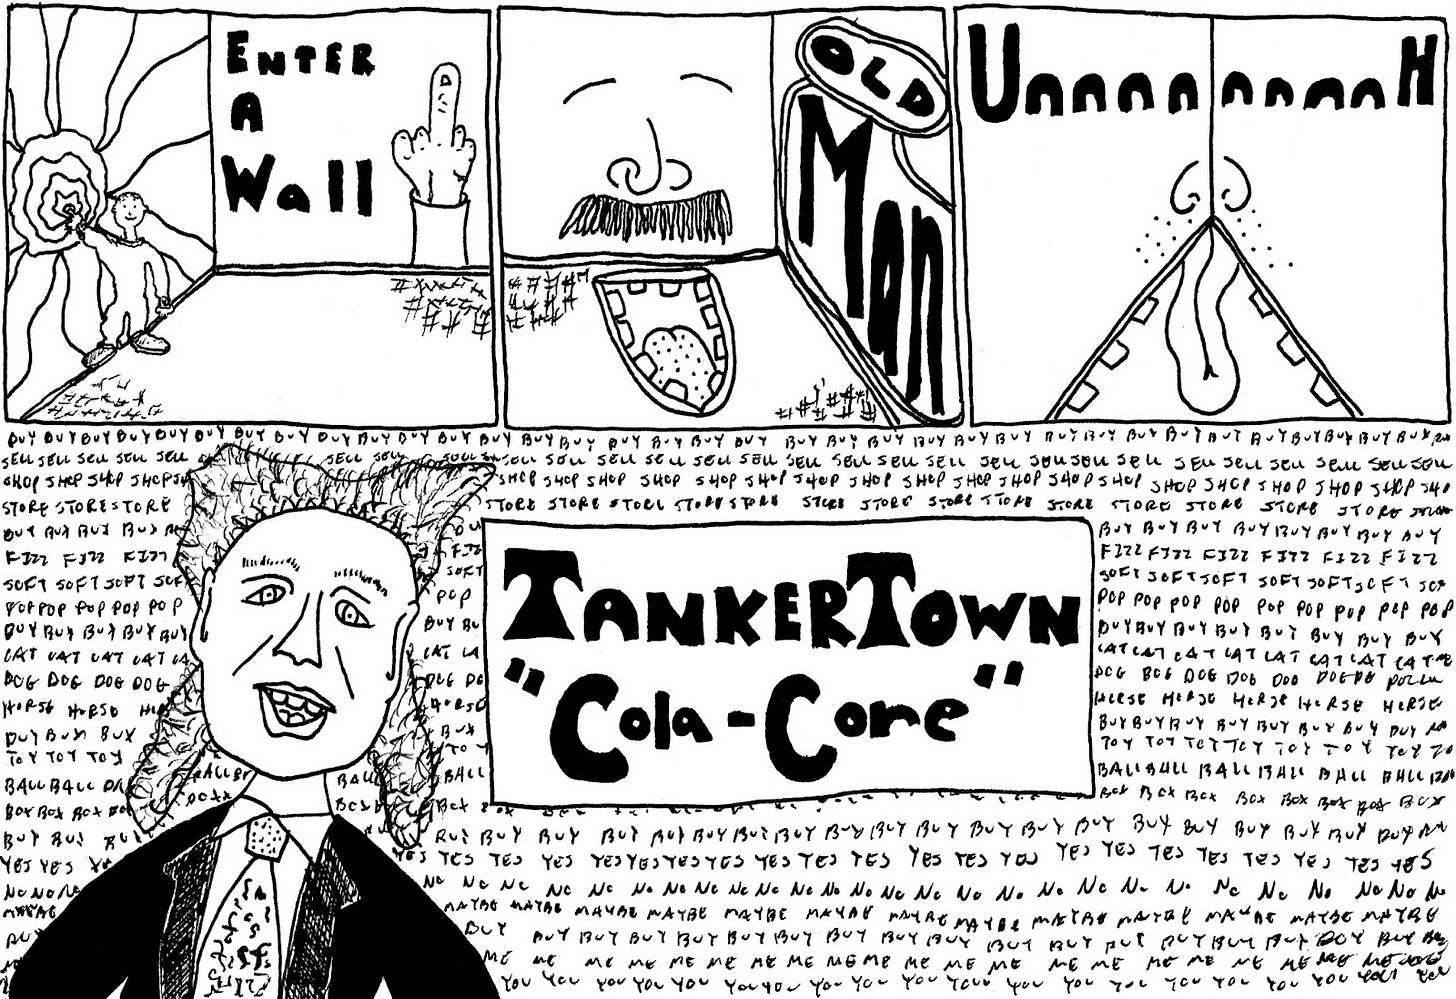 ENTER
A
Wall
OLD
Man
UnnnnnnnnnH
BUY BUY BUY BUY BUY BUY BUY BUY BUY BUY BUY BUY BUY BUY BUY BUY BUY BUY BUY BUY BUY BUY BUY BUY BUY BUY BUY BUY BUY BUY BUY BUY
SELL SELL SELL SELL SELL SELL SELL SELL SELL SELL SELL SELL SELL SELL SELL SELL SELL SELL SELL SELL SELL SELL SELL SELL
SHOP SHOP SHOP SHOP SHOP SHOP SHOP SHOP SHOP SHOP SHOP SHOP SHOP SHOP SHOP SHOP SHOP SHOP SHOP SHOP
STORE STORE STORE STORE STORE STORE STORE STORE STORE STORE STORE STORE STORE STORE STORE STORE
BUY BUY BUY BUY BUY BUY BUY BUY BUY BUY BUY
FIZZ FIZZ FIZZ FIZZ FIZZ FIZZ FIZZ FIZZ FIZZ
SOFT SOFT SOFT SOFT SOFT SOFT SOFT SOFT SOFT SOFT SOFT
POP POP POP POP POP POP POP POP POP POP POP POP POP POP
TANKERTOWN
BUY BUY BUY BUY BUY BUY BUY BUY BUY BUY BUY BUY BUY
CAT CAT CAT CAT CAT CAT CAT CAT CAT CAT CAT CAT
DOG DOG DOG DOG DOG DOG DOG DOG DOG DOG
HORSE HORSE HORSE HORSE HORSE HORSE HORSE HORSE
"Cola-Core"
BUY BUY BUY BUY BUY BUY BUY BUY BUY BUY BUY
TOY TOY TOY TOY TOY TOY TOY TOY TOY TOY TOY
BALL BALL BALL BALL BALL BALL BALL BALL BALL BALL
BOX BOX BOX BOX BOX BOX BOX BOX BOX BOX BOX BOX BOX
BUY BUY BUY BUY BUY BUY BUY BUY BUY BUY BUY BUY BUY BUY BUY BUY BUY BUY BUY BUY BUY
YES YES YES YES YES YES YES YES YES YES YES YES YES YES YES YES YES YES YES YES YES YES
No No No No No No No No No No No No No No No No No No No No No No No No No
MAYBE MAYBE MAYBE MAYBE MAYBE MAYBE MAYBE MAYBE MAYBE MAYBE MAYBE MAYBE MAYBE MAYBE
BUY BUY BUY BUY BUY BUY BUY BUY BUY BUY BUY BUY BUY BUY BUY BUY BUY BUY BUY
ME ME ME ME ME ME ME ME ME ME ME ME ME ME ME ME ME ME ME
YOU YOU YOU YOU YOU YOU YOU YOU YOU YOU YOU YOU YOU YOU YOU YOU YOU YOU YOU YOU YOU